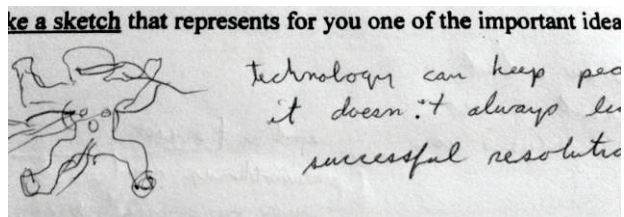 ke a sketch that represents for you one of the important idea
technology can keep peo
it doesn't always le
successful resolutio